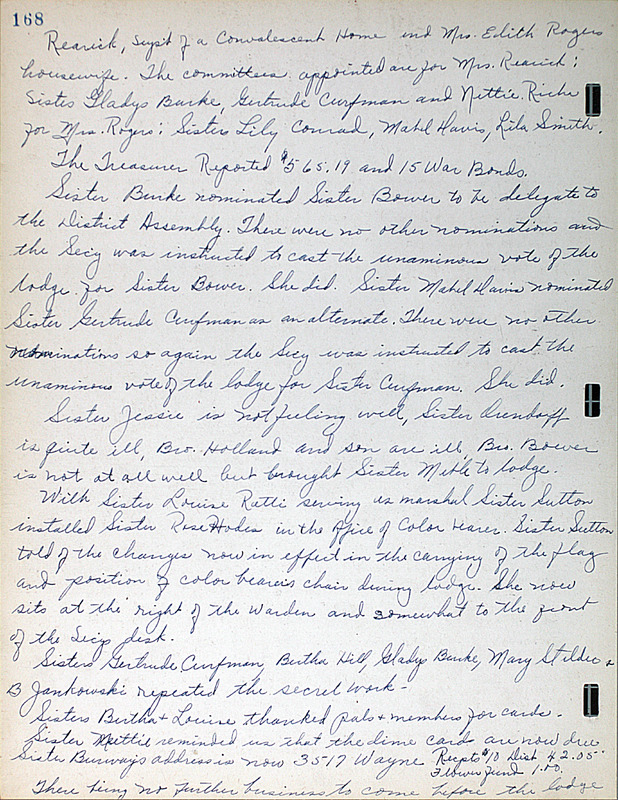 168
Rearick, Sup't of a Convalescent Home and Mrs. Edith Rogers
housewife. The committees appointed are for Mrs. Rearick:
Sisters Gladys Burke, Gertrude Curfman and Nettie Riche
for Mrs. Rogers: Sisters Lily Conrad, Mabel Davis, Lila Smith.
The Treasurer Reported $565.19 and 15 War Bonds.
Sister Burke nominated Sister Bower to be delegate to
the District Assembly. There were no other nominations and
the Secy was instructed to cast the unaminous vote of the
lodge for Sister Bower. She did. Sister Mabel Davis nominated
Sister Gertrude Curfman as an alternate. There were no other
nominations so again the Secy was instructed to cast the
unaminous vote of the lodge for Sister Curfman. She did.
Sister Jessie is not feeling well, Sister Orendorff
is quite ill, Bro. Holland and son are ill, Bro. Bower
is not at all well but brought Sister to lodge.
With Sister Louise Ratti serving as marshal Sister Sutton
installed Sister Rose Hodes in the office of Color Bearer. Sister Sutton
told of the changes now in effect in the carrying of the flag
and position of color bearers chair during lodge. She now
sits at the right of the Warden and somewhat to the front
of the Secys desk.
Sisters Gertrude Curfman, Bertha Hill, Gladys Burke, Mary
B Jankowski repeated the secret work -
Sisters Bertha + Louise thanked pals + members for cards.
Sister Nettie reminded us that the dime cards are now due
Sister Burways address is now 3517 Wayne Recpts $10 Disb 42.05
Flower Fund 1.00
There being no further business to come before the lodge